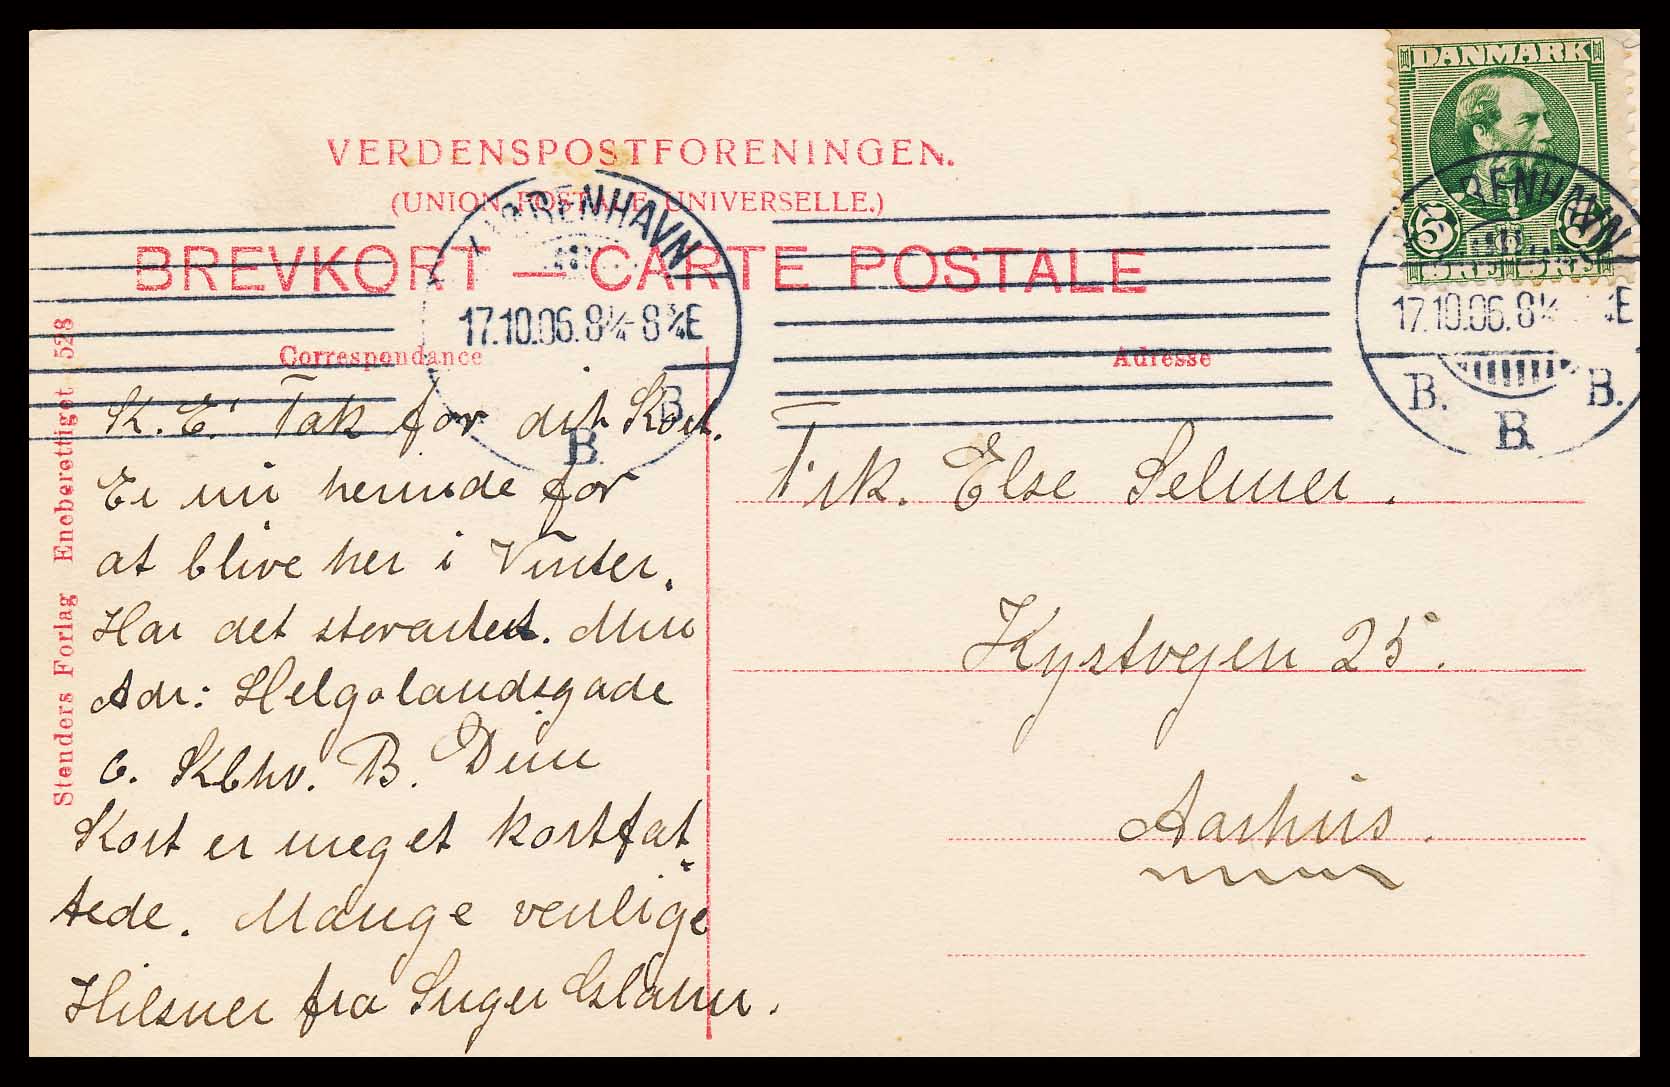 DANMARK
5
ØRE ØRE
VERDENSPOSTFORENINGEN.
(UNION POSTALE UNIVERSELLE.)
BREVKORT — CARTE POSTALE
KJØBENHAVN
17.10.06. 8¼-8¾E
B.
B.
17.10.06. 8¼
B. B.
B.
Correspondance
Adresse
K. E! Tak for dit Kort.
Er nu herinde for
at blive her i Vinter.
Har det storartet. Min
Adr: Helgolandsgade
6. Kbhv. B. Dine
Kort er meget kortfat
tede. Mange venlige
Hilsner fra Inger
Frk. Else Selmer.
Kystvejen 25.
Aarhus.
Stenders Forlag Eneberettiget 528